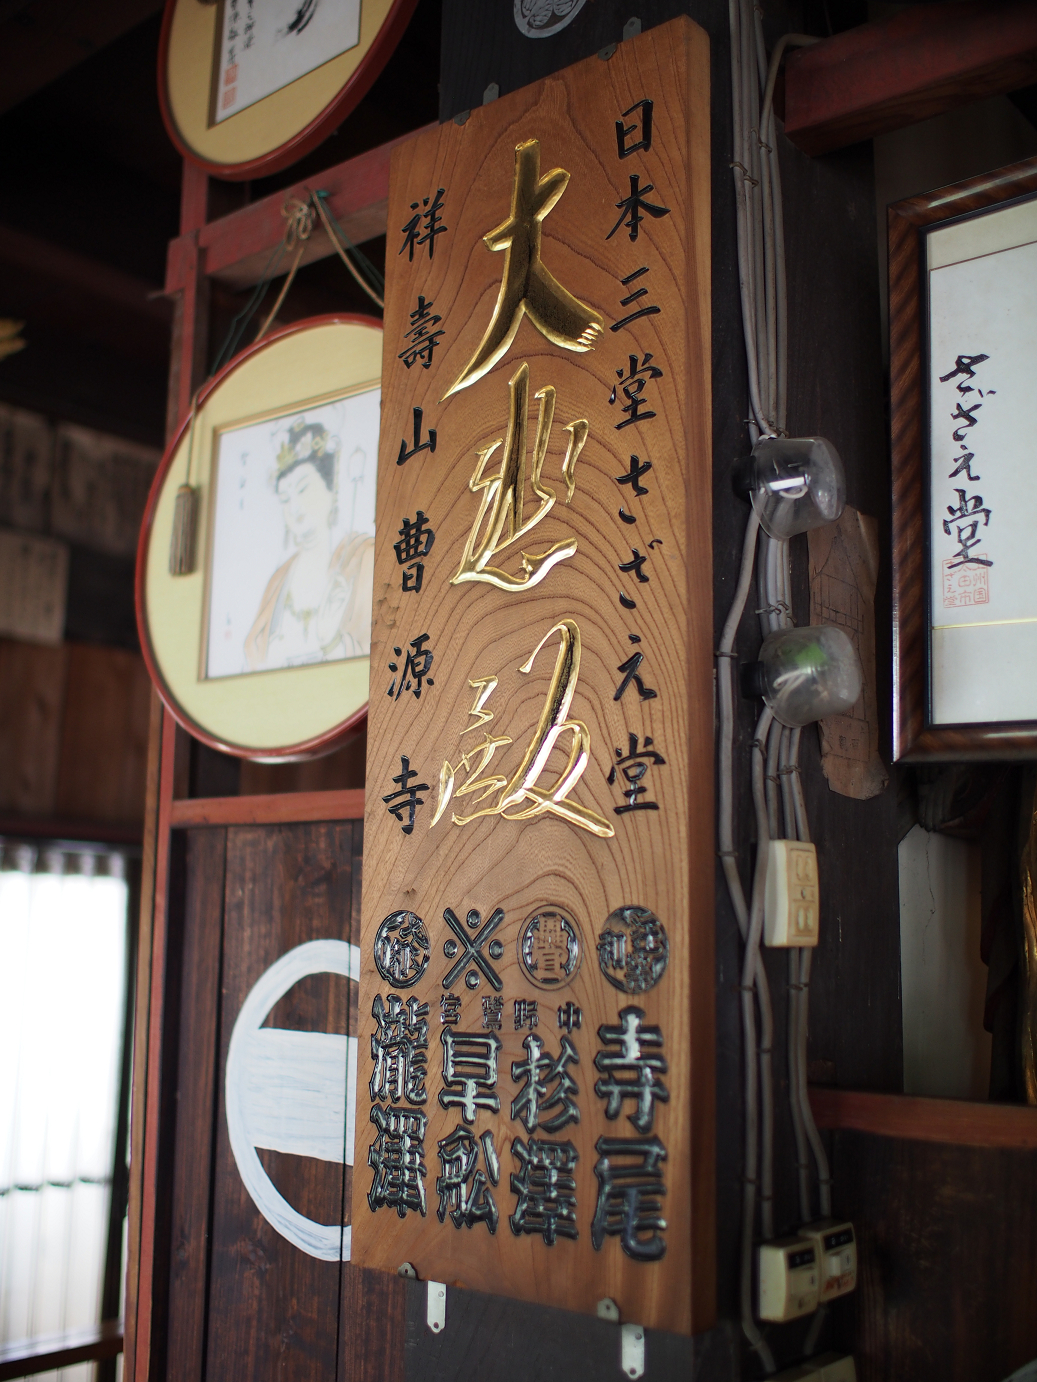 日本三堂さざえ堂
大悲殿
祥壽山曹源寺
中野鷺宮
寺尾
杉澤
早舩
瀧澤
さざえ堂